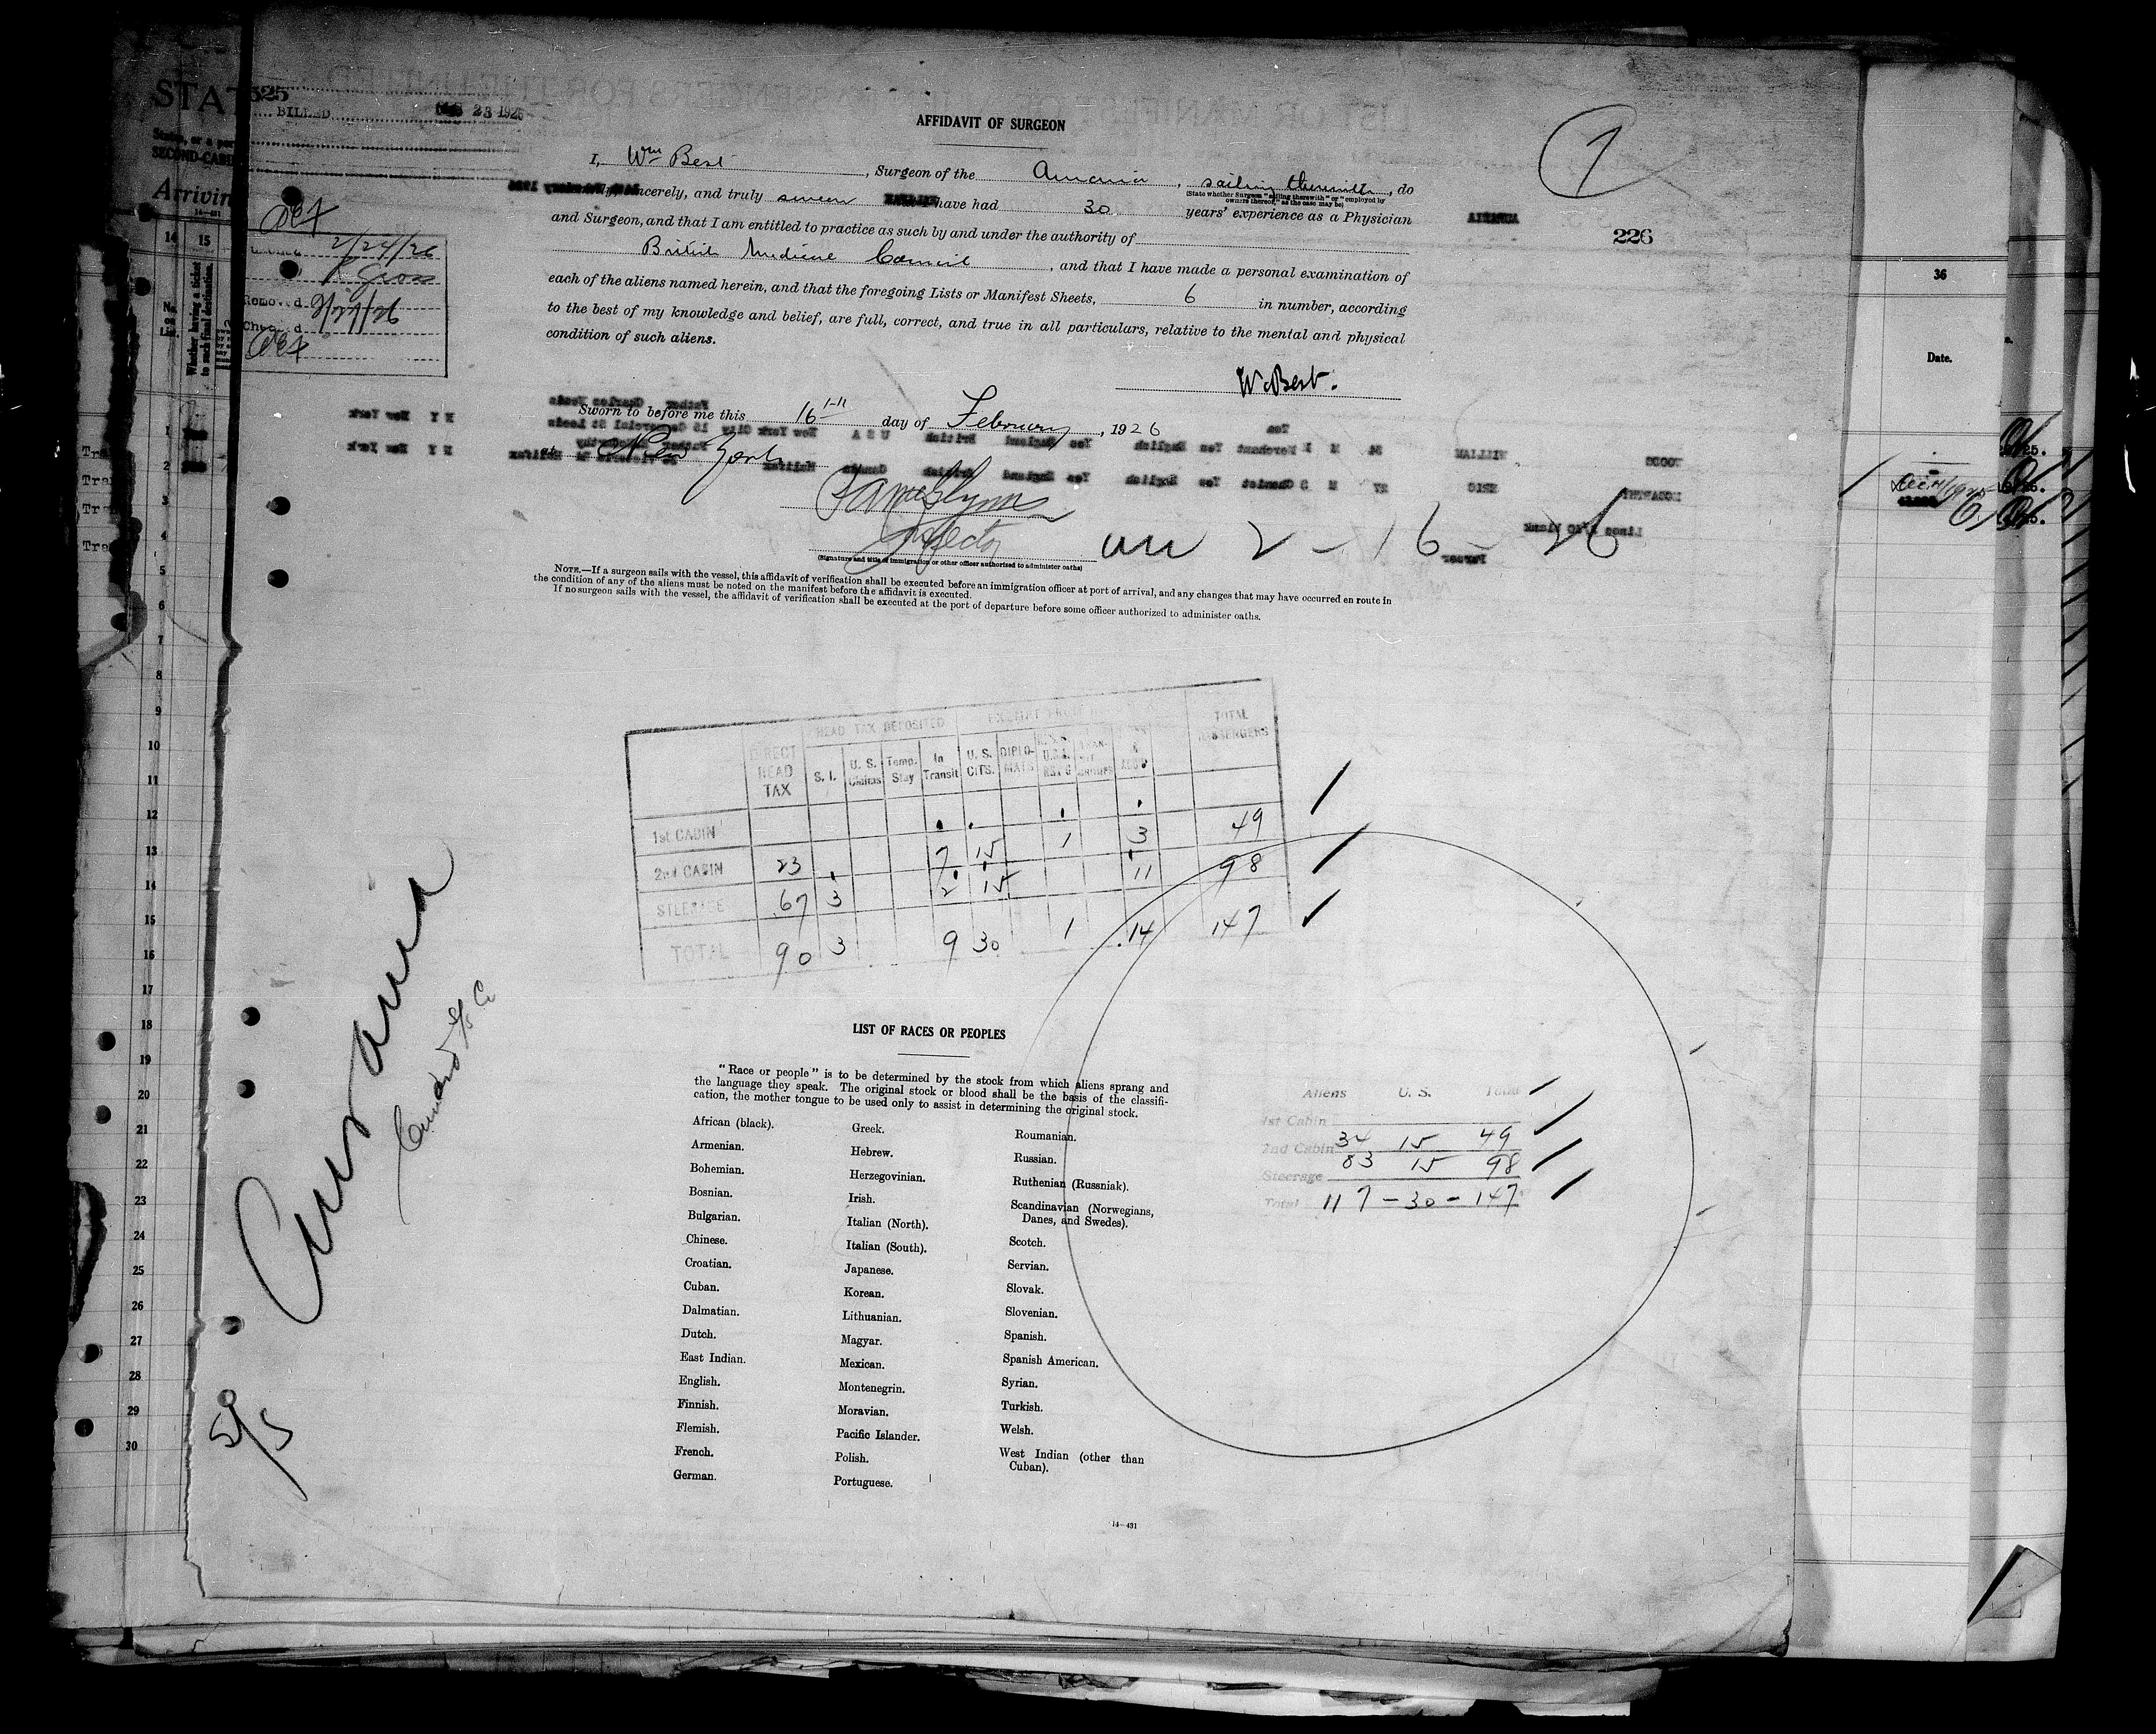 STAT
525
BILLED FEB 23 1926
SECOND-CABI
Arrivin
14
15
Whether having a ticket
to such final destination.
2/24/26
Gross
Removed 2/27/26
Checked
AFFIDAVIT OF SURGEON
1
I, Wm Best, Surgeon of the Aurania, sailing therewith, do
(State whether Surgeon "sailing therewith" or "employed by
owners thereof," as the case may be)
sincerely, and truly swear have had 30 years' experience as a Physician
and Surgeon, and that I am entitled to practice as such by and under the authority of
British Medical Council, and that I have made a personal examination of
each of the aliens named herein, and that the foregoing Lists or Manifest Sheets, 6 in number, according
to the best of my knowledge and belief, are full, correct, and true in all particulars, relative to the mental and physical
condition of such aliens.
226
W. Best.
Sworn to before me this 16th day of February, 1926
at New York
Inspector
(Signature and title of immigration or other officer authorized to administer oaths)
2-16-26
NOTE.—If a surgeon sails with the vessel, this affidavit of verification shall be executed before an immigration officer at port of arrival, and any changes that may have occurred en route in
the condition of any of the aliens must be noted on the manifest before the affidavit is executed.
If no surgeon sails with the vessel, the affidavit of verification shall be executed at the port of departure before some officer authorized to administer oaths.
36
Date.
DIRECT HEAD TAX
HEAD TAX DEPOSITED
S. I.
U. S. Claims
Temp. Stay
In Transit
U. S. CITS.
DIPLO-MATS
TOTAL PASSENGERS
1st CABIN
2nd CABIN 23 7 15 1 3 49
STEERAGE 67 3 2 15 11 98
TOTAL 90 3 9 30 1 14 147
Aurania
Cunard S/S Co
5/5
LIST OF RACES OR PEOPLES
"Race or people" is to be determined by the stock from which aliens sprang and
the language they speak. The original stock or blood shall be the basis of the classifi-
cation, the mother tongue to be used only to assist in determining the original stock.
African (black).
Armenian.
Bohemian.
Bosnian.
Bulgarian.
Chinese.
Croatian.
Cuban.
Dalmatian.
Dutch.
East Indian.
English.
Finnish.
Flemish.
French.
German.
Greek.
Hebrew.
Herzegovinian.
Irish.
Italian (North).
Italian (South).
Japanese.
Korean.
Lithuanian.
Magyar.
Mexican.
Montenegrin.
Moravian.
Pacific Islander.
Polish.
Portuguese.
Roumanian.
Russian.
Ruthenian (Russniak).
Scandinavian (Norwegians,
Danes, and Swedes).
Scotch.
Servian.
Slovak.
Slovenian.
Spanish.
Spanish American.
Syrian.
Turkish.
Welsh.
West Indian (other than
Cuban).
Aliens U. S. Total
1st Cabin
2nd Cabin 34 15 49
Steerage 83 15 98
Total 117 - 30 - 147
14-431
1
2
3
4
5
6
7
8
9
10
11
12
13
14
15
16
17
18
19
20
21
22
23
24
25
26
27
28
29
30